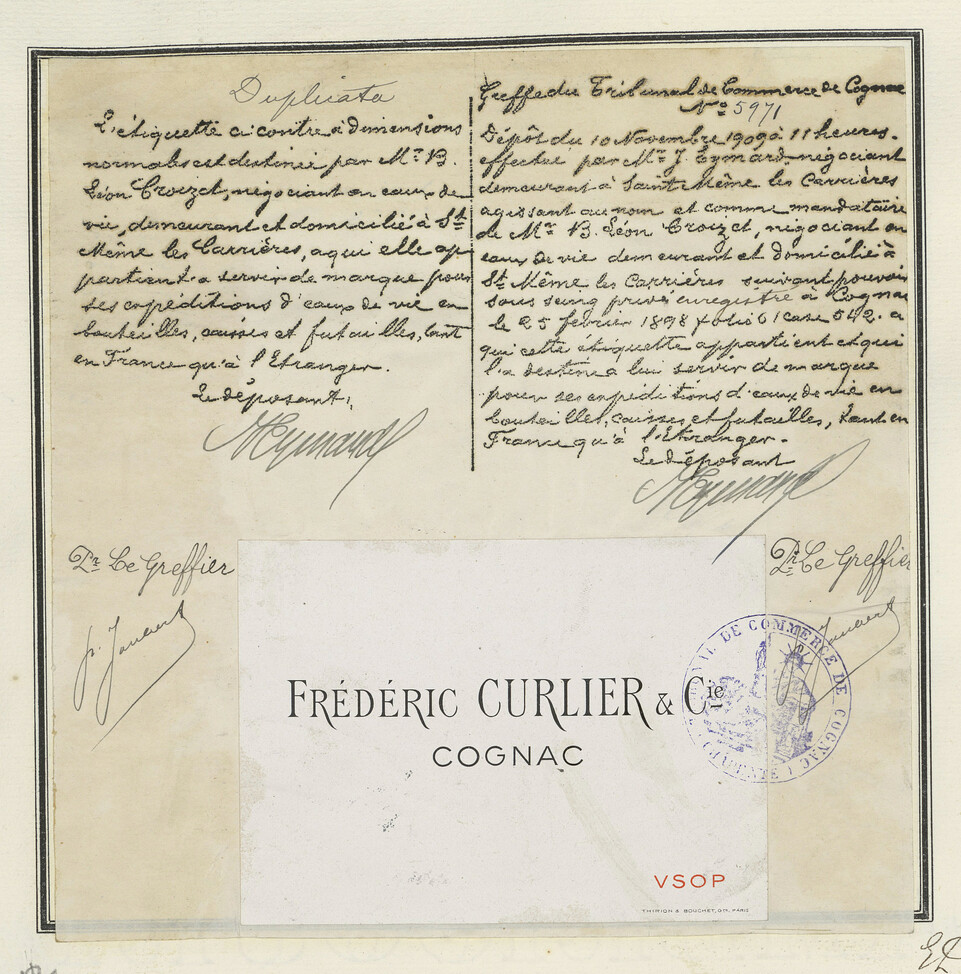 Duplicata
L'étiquette ci contre à dimensions
normales est destinée par Mr B.
Léon Croizet, négociant en eaux de
vie, demeurant et domicilié à St
Même les Carrières, a qui elle ap
partient a servir de marque pour
ses expéditions d'eaux de vie en
bouteilles, caisses et futailles, tant
en France qu'à l'Etranger.
Le déposant,
Greffe du Tribunal de Commerce de Cognac
No 5971
Dépôt du 10 Novembre 1909 à 11 heures.
effectué par Mr J. Eymard négociant
demeurant à Sainte Même les Carrières
agissant au nom et comme mandataire
de Mr B. Léon Croizet, négociant en
eaux de vie demeurant et domicilié à
St Même les Carrières suivant pouvoir
sous seing privé enregistré à Cognac
le 25 février 1898 folio 61 case 542. a
qui cette etiquette appartient et qui
l'a destine a lui servir de marque
pour ses expéditions d'eaux de vie en
bouteilles, caisses et futailles, tant en
France qu'à l'Etranger.
Le déposant
Pr Le Greffier
Pr Le Greffier
FRÉDÉRIC CURLIER & Cie
COGNAC
TRIBUNAL DE COMMERCE DE COGNAC
(CHARENTE)
VSOP
THIRION & BOUCHET, GTS. PARIS